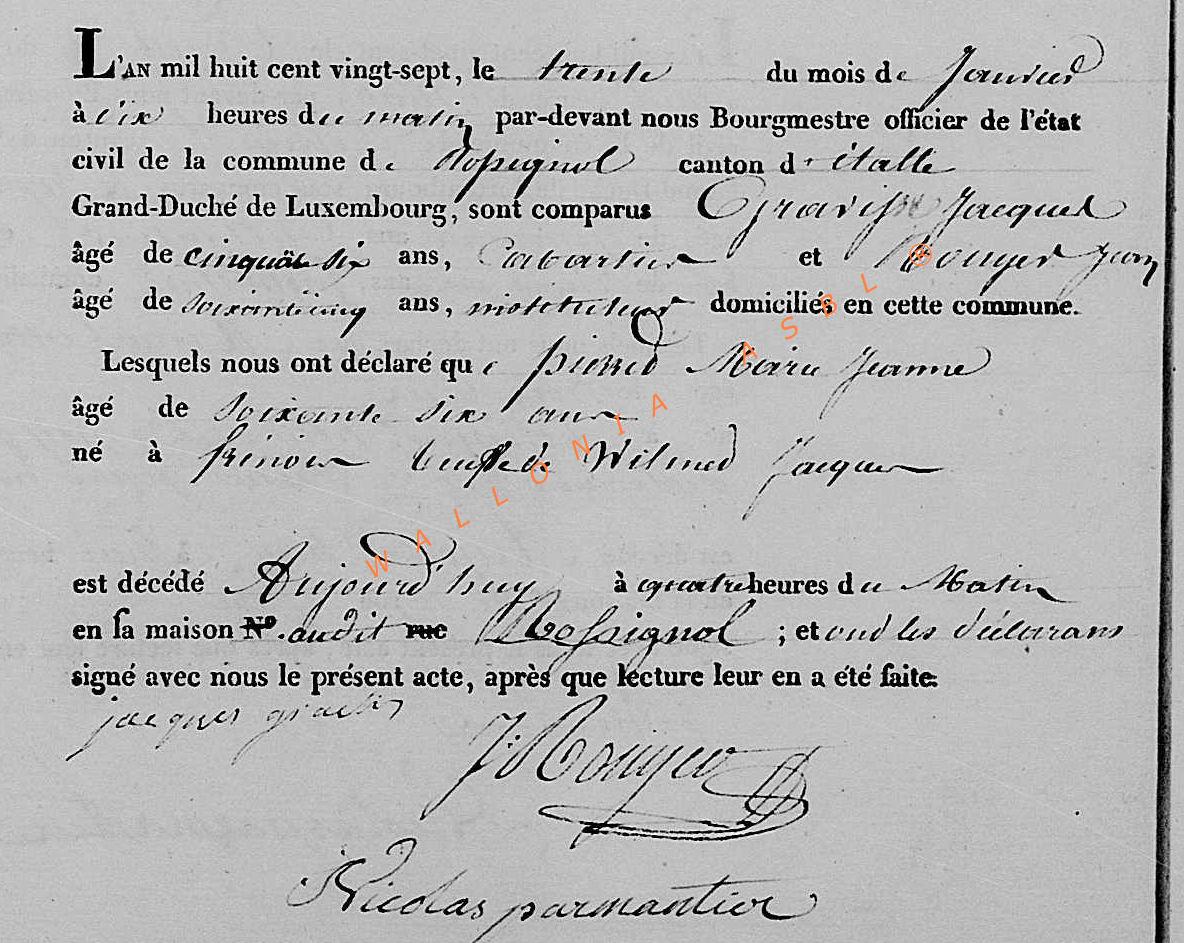 L'AN mil huit cent vingt-sept, le trente du mois de Janvier
à six heures du matin par-devant nous Bourgmestre officier de l'état
civil de la commune de Rossignol canton d'étalle
Grand-Duché de Luxembourg, sont comparus Gravisse Jacques
âgé de cinquante six ans, Cabartier et Rouyer Jean
âgé de soixantecinq ans, instituteur domiciliés en cette commune.
Lesquels nous ont déclaré que pierred Marie Jeanne
âgé de soixante six ans
né à frenois Veuffe de Wilmed Jacques
est décédé Aujourd'huy à quatre heures du Matin
en sa maison N°. audit rue Rossignol ; et ond les déclarans
signé avec nous le présent acte, après que lecture leur en a été faite.
jacques
J: Rouyer
Nicolas parmantier
WALLONIA ASBL ®